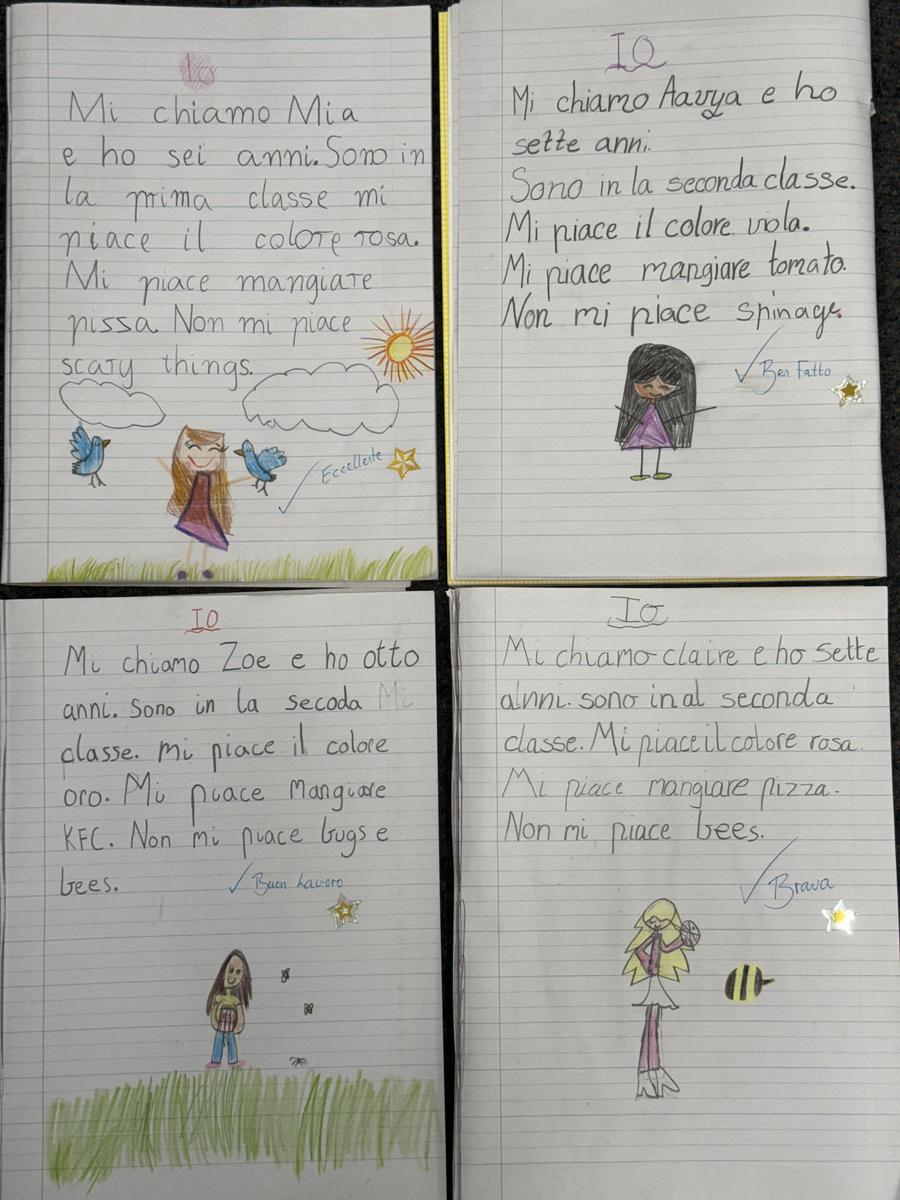 Io
Mi chiamo Mia
e ho sei anni. Sono in
la prima classe mi
piace il colore rosa.
Mi piace mangiare
pissa. Non mi piace
scary things.
Eccellente
IO
Mi chiamo Aavya e ho
sette anni.
Sono in la seconda classe.
Mi piace il colore viola.
Mi piace mangiare tomato.
Non mi piace spinage.
Ben Fatto
IO
Mi chiamo Zoe e ho otto
anni. Sono in la secoda Mi
classe. mi piace il colore
oro. Mi piace Mangiare
KFC. Non mi piace bugs e
bees.
Buon Lavoro
Io
Mi chiamo claire e ho sette
ainni. sono in al seconda
classe. Mi piace il colore rosa.
Mi piace mangiare pizza.
Non mi piace bees.
Brava